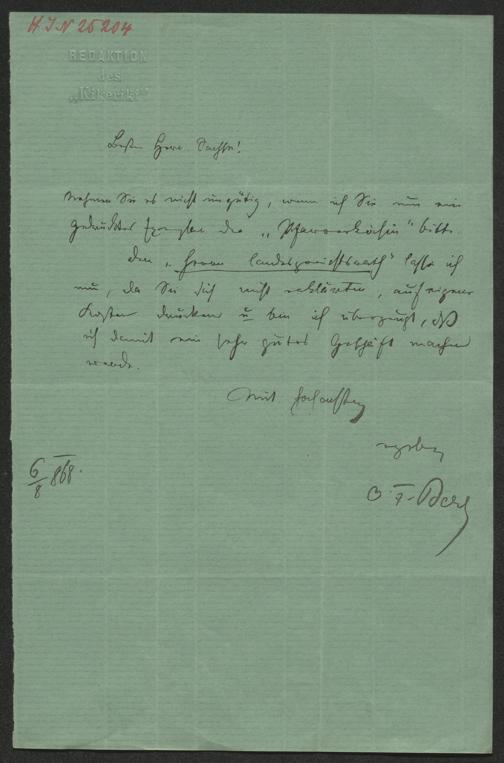 H.I.N 25204
REDAKTION
des
„Kikeriki“
Besten Herr Sachse!
Nehmen Sie es nicht ungütig, wenn ich Sie um ein
gedrucktes Exemplar der „Pfarrersköchin“ bitte.
Den „Herrn Landesgerichtsrath“ lasse ich
nun, da Sie sich nicht erklärten, auf eigene
Kosten drucken u bin ich überzeugt, daß
ich damit ein sehr gutes Geschäft machen
werde.
Mit Hochachtung
ergeben
O. F. Berg
6/8 868.